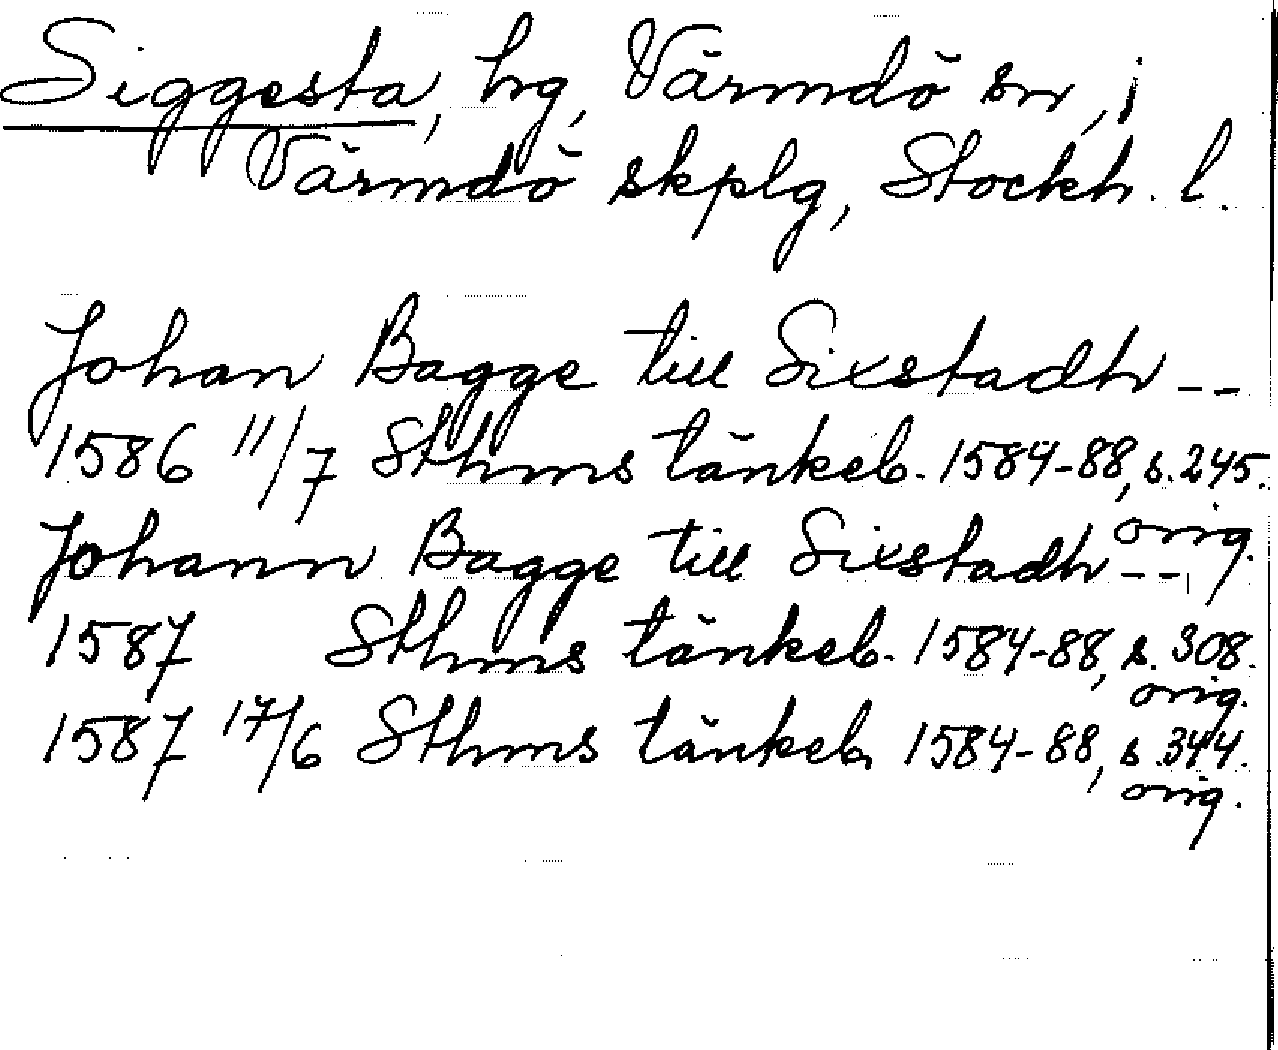 Siggesta, hg, Värmdö sn, i
Värmdö skplg, Stockh. l.
Johan Bagge till Sixstadh --
1586 11/7 Sthms tänkeb. 1584-88, s. 245.
orig.
Johann Bagge till Sixstadh --
1587 Sthms tänkeb. 1584-88, s. 308.
orig.
1587 17/6 Sthms tänkeb. 1584-88, s. 344.
orig.